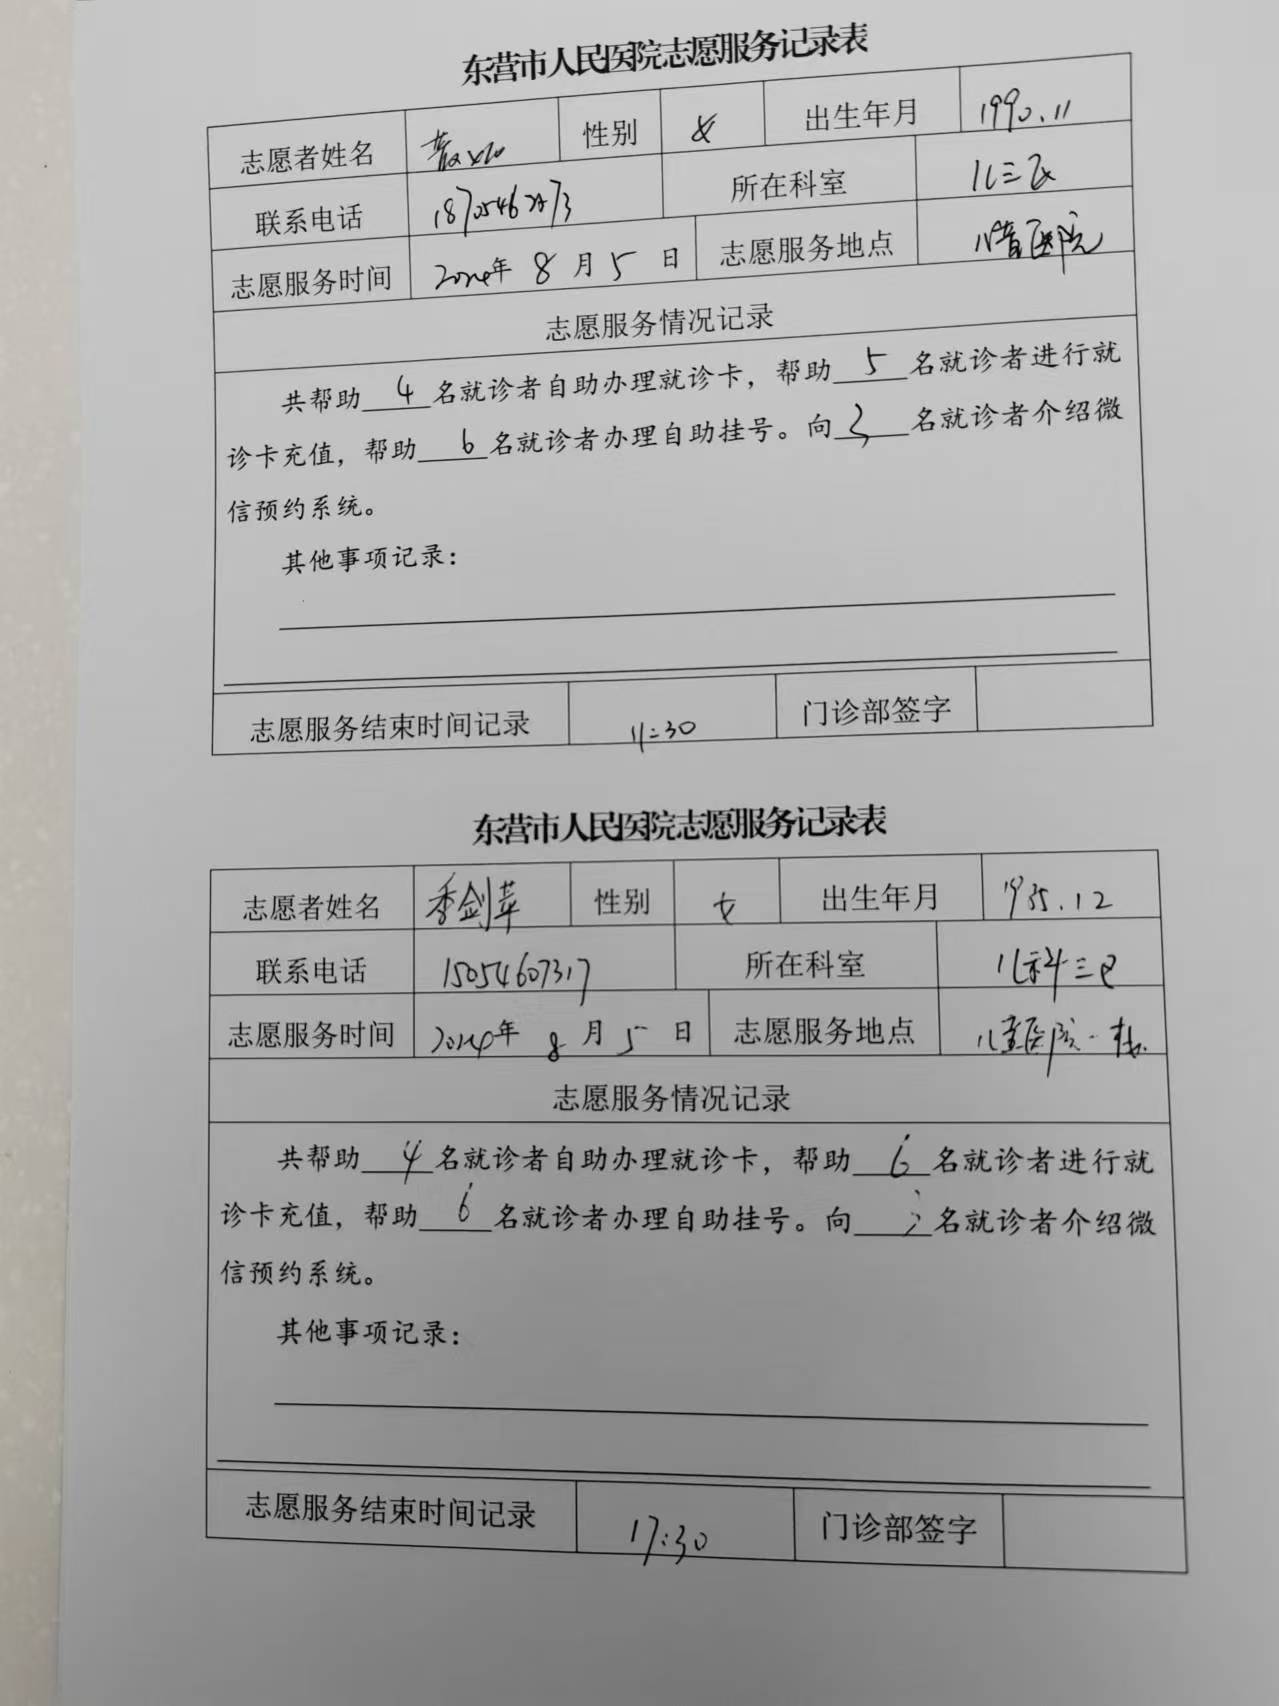 东营市人民医院志愿服务记录表
志愿者姓名 性别 女 出生年月 1990.11
联系电话 所在科室 儿三区
志愿服务时间 2024年 8 月 5 日 志愿服务地点 儿童医院
志愿服务情况记录
共帮助 4 名就诊者自助办理就诊卡，帮助 5 名就诊者进行就
诊卡充值，帮助 6 名就诊者办理自助挂号。向 3 名就诊者介绍微
信预约系统。
其他事项记录：
志愿服务结束时间记录 11:30 门诊部签字
东营市人民医院志愿服务记录表
志愿者姓名 季剑苹 性别 女 出生年月 1985.12
联系电话 15054607317 所在科室 儿科三区
志愿服务时间 2024年 8 月 5 日 志愿服务地点 儿童医院一楼
志愿服务情况记录
共帮助 4 名就诊者自助办理就诊卡，帮助 6 名就诊者进行就
诊卡充值，帮助 6 名就诊者办理自助挂号。向 名就诊者介绍微
信预约系统。
其他事项记录：
志愿服务结束时间记录 17:30 门诊部签字